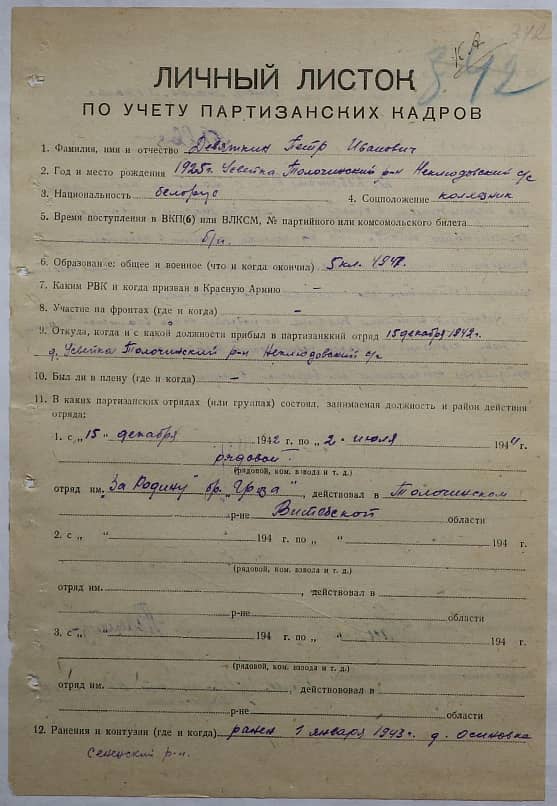 342
342
ЛИЧНЫЙ ЛИСТОК
ПО УЧЕТУ ПАРТИЗАНСКИХ КАДРОВ
1. Фамилия, имя и отчество Девяткин Петр Иванович
2. Год и место рождения 1925г. Усвейка Толочинский р-н Неклюдовский с/с
3. Национальность белорус 4. Соцположение колхозник
5. Время поступления в ВКП(б) или ВЛКСМ, № партийного или комсомольского билета
б/п.
6. Образован-е: общее и военное (что и когда окончил) 5 кл. 1941г.
7. Каким РВК и когда призван в Красную Армию –
8. Участие на фронтах (где и когда) –
9. Откуда, когда и с какой должности прибыл в партизанкий отряд 15 декабря 1942г.
д. Усвейка Толочинский р-н Неклюдовский с/с
10. Был ли в плену (где и когда) –
11. В каких партизанских отрядах (или группах) состоял, занимаемая должность и район действия
отряда:
1. с „15„ декабря 1942 г. по „ 2 - июля 1944 г.
рядовой
(рядовой, ком. взвода и т. д.)
отряд им. "За Родину" бр. "Гроза", действовал в Толочинском
р-не Витебской области
2. с „ „ 194 г. по „ „ 194 г.
(рядовой, ком. взвода и т. д.)
отряд им. , действовал в
р-не области
3. с „ „ 194 г. по „ „ 194 г.
(рядовой, ком. взвода и т. д.)
отряд им. , действововал в
р-не области
12. Ранения и контузии (где и когда) ранен 1 января 1943г. д. Осиновка
Сенненский р-н.